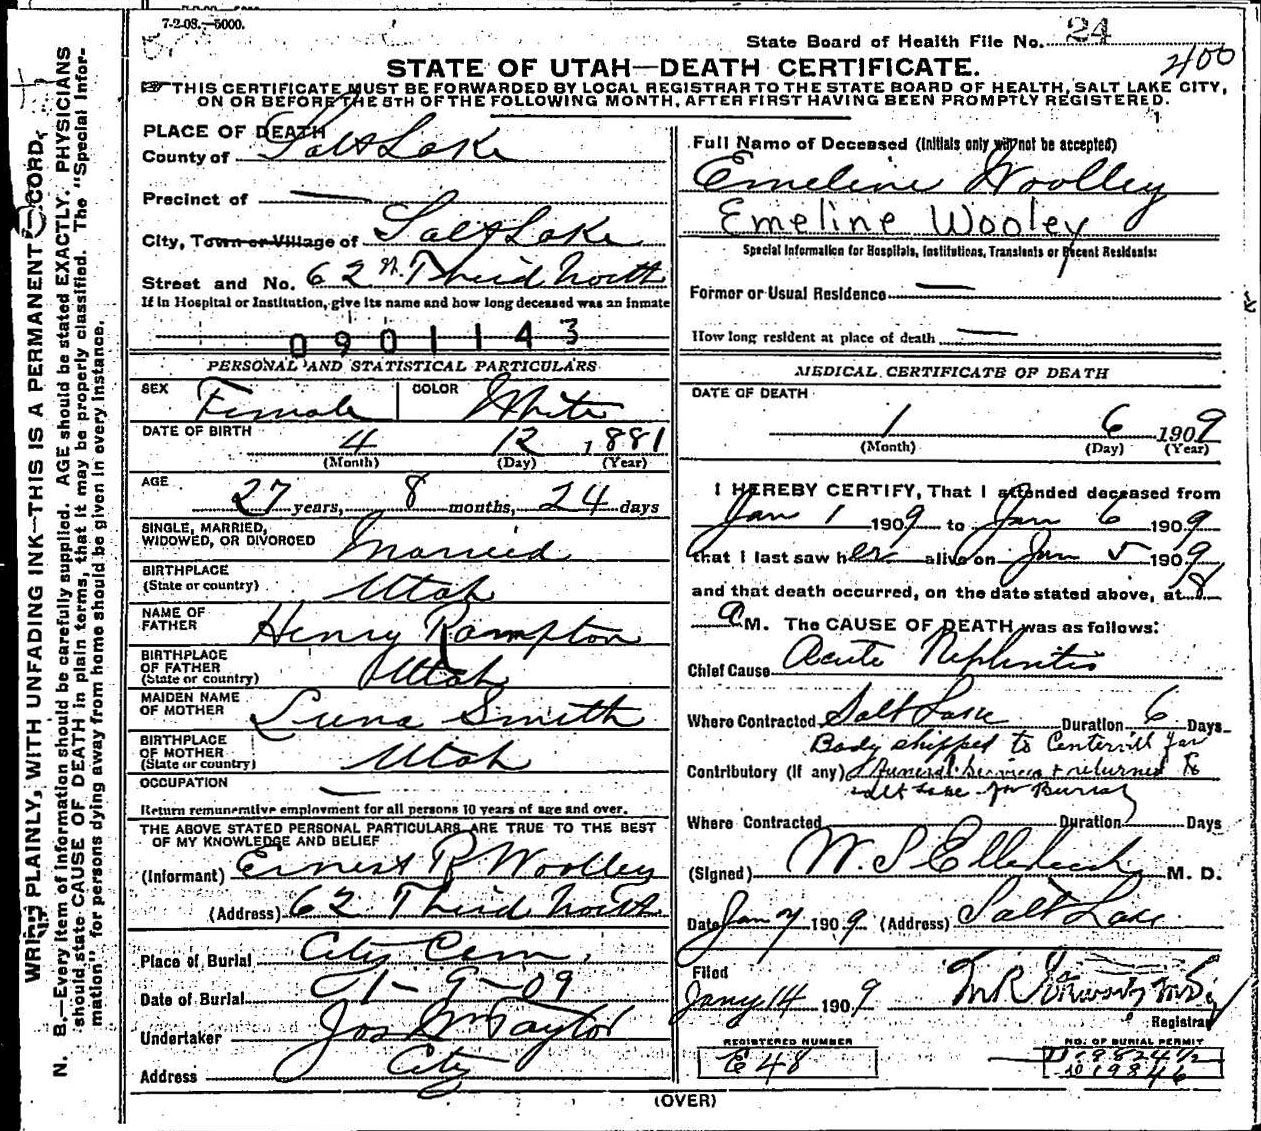 7-2-08.—5000.
State Board of Health File No. 24
400
STATE OF UTAH—DEATH CERTIFICATE.
THIS CERTIFICATE MUST BE FORWARDED BY LOCAL REGISTRAR TO THE STATE BOARD OF HEALTH, SALT LAKE CITY,
ON OR BEFORE THE 5TH OF THE FOLLOWING MONTH, AFTER FIRST HAVING BEEN PROMPTLY REGISTERED.
WRITE PLAINLY, WITH UNFADING INK—THIS IS A PERMANENT RECORD.
N. B.—Every item of information should be carefully supplied. AGE should be stated EXACTLY. PHYSICIANS
should state CAUSE OF DEATH in plain terms, that it may be properly classified. The "Special Infor-
mation" for persons dying away from home should be given in every instance.
PLACE OF DEATH
County of Salt Lake
Precinct of —
City, Town or Village of Salt Lake
Street and No. 62 n. Third North
If in Hospital or Institution, give its name and how long deceased was an inmate
0901143
PERSONAL AND STATISTICAL PARTICULARS
SEX Female COLOR White
DATE OF BIRTH 4 12 1881
(Month) (Day) (Year)
AGE 27 years, 8 months, 24 days
SINGLE, MARRIED,
WIDOWED, OR DIVORCED Married
BIRTHPLACE
(State or country) Utah
NAME OF
FATHER Henry Rampton
BIRTHPLACE
OF FATHER
(State or country) Utah
MAIDEN NAME
OF MOTHER Luna Smith
BIRTHPLACE
OF MOTHER
(State or country) Utah
OCCUPATION —
Return remunerative employment for all persons 10 years of age and over.
THE ABOVE STATED PERSONAL PARTICULARS ARE TRUE TO THE BEST
OF MY KNOWLEDGE AND BELIEF
(Informant) Ernest R Woolley
(Address) 62 Third North
Place of Burial City Cem.
Date of Burial 1-9-09
Undertaker Jos Wm Taylor
Address City
Full Name of Deceased (Initials only will not be accepted)
Emeline Woolley
Emeline Wooley
Special Information for Hospitals, Institutions, Transients or Recent Residents:
Former or Usual Residence —
How long resident at place of death —
MEDICAL CERTIFICATE OF DEATH
DATE OF DEATH
1 6 1909
(Month) (Day) (Year)
I HEREBY CERTIFY, That I attended deceased from
Jan 1 1909 to Jan 6 1909
that I last saw her alive on Jan 5 1909
and that death occurred, on the date stated above, at 8
a M. The CAUSE OF DEATH was as follows:
Chief Cause Acute Nephritis
Where Contracted Salt Lake Duration 6 Days
Body shipped to Centervill for
Contributory (if any) Funeral Services & returned to
Salt Lake for Burial
Where Contracted Duration Days
(Signed) W. S Ellerbeck M. D.
Date Jan 7 1909 (Address) Salt Lake
Filed
Jany 14 1909
Registrar
REGISTERED NUMBER
E 48
NO. OF BURIAL PERMIT
19846
(OVER)